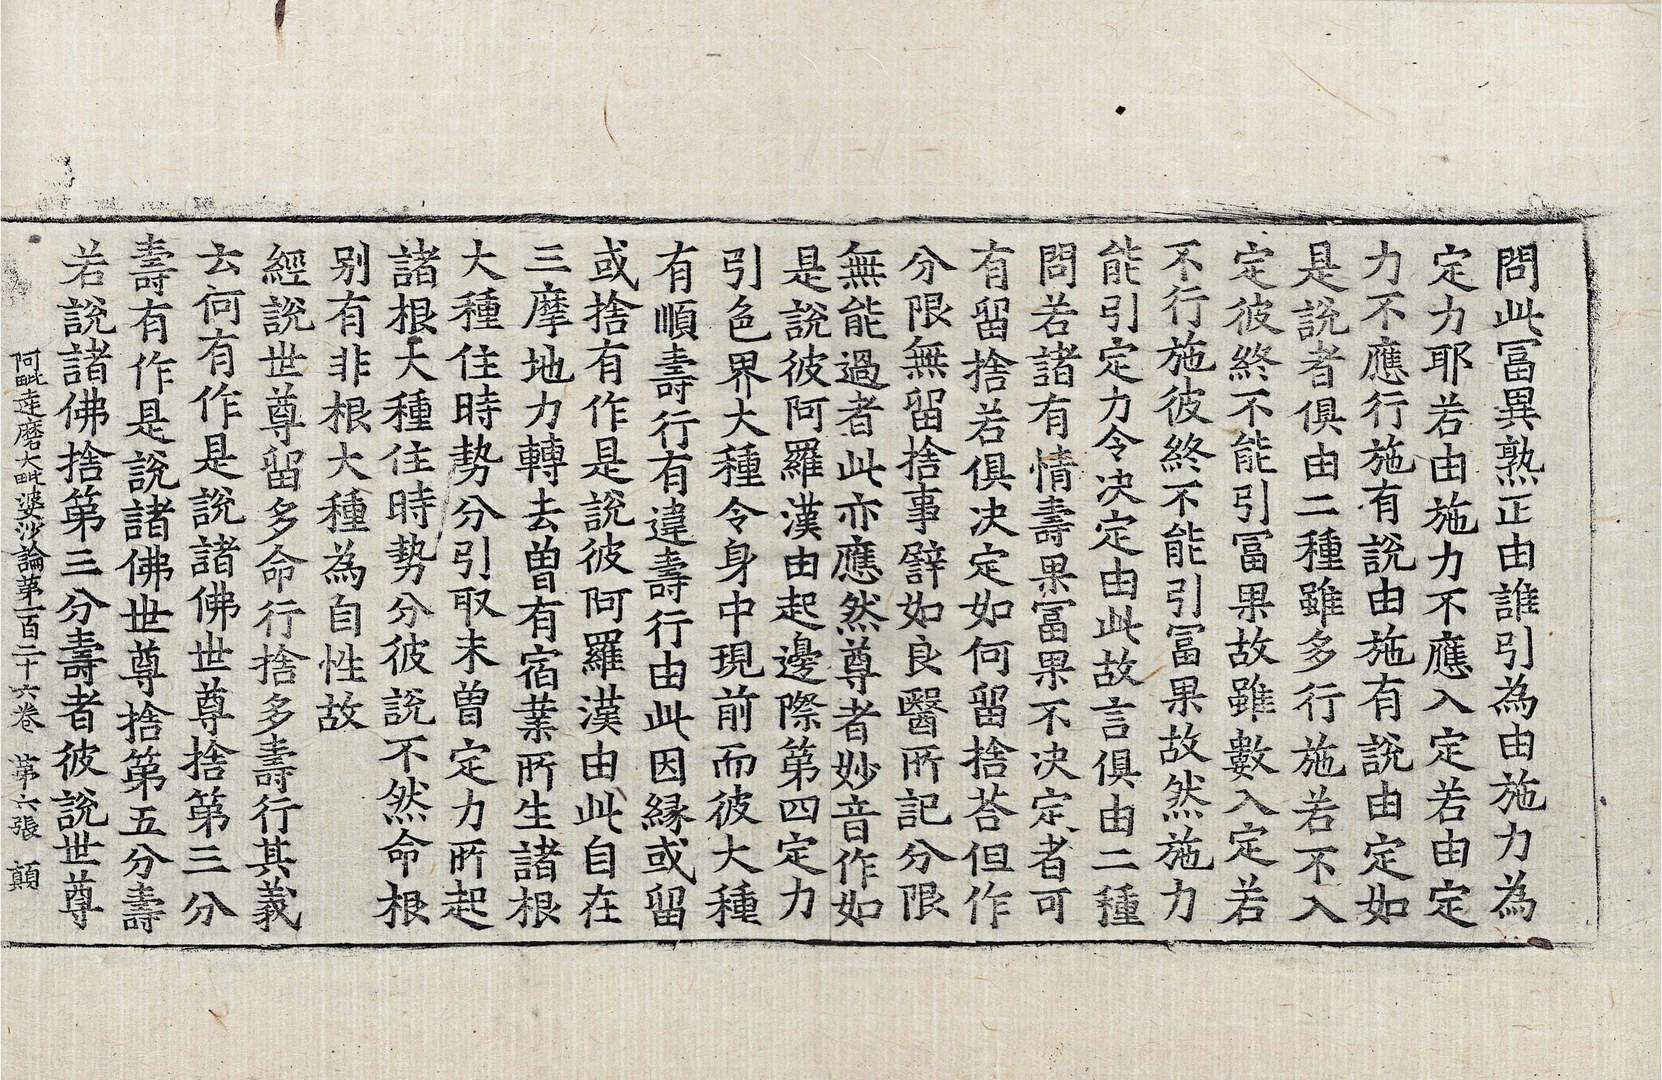 問此冨異熟正由誰引為由施力為
定力耶若由施力不應入定若由定
力不應行施有說由施有說由定如
是說者俱由二種雖多行施若不入
定彼終不能引冨果故雖數入定若
不行施彼終不能引冨果故然施力
能引定力令决定由此故言俱由二種
問若諸有情壽果冨果不决定者可
有留捨若俱决定如何留捨荅但作
分限無留捨事譬如良醫所記分限
無能過者此亦應然尊者妙音作如
是說彼阿羅漢由起邊際第四定力
引色界大種令身中現前而彼大種
有順壽行有違壽行由此因緣或留
或捨有作是說彼阿羅漢由此自在
三摩地力轉去曾有宿業所生諸根
大種住時勢分引取未曾定力所起
諸根大種住時勢分彼說不然命根
別有非根大種為自性故
經說世尊留多命行捨多壽行其義
云何有作是說諸佛世尊捨第三分
壽有作是說諸佛世尊捨第五分壽
若說諸佛捨第三分壽者彼說世尊
阿毗達磨大毗婆沙論第一百二十六卷 第六張 顛